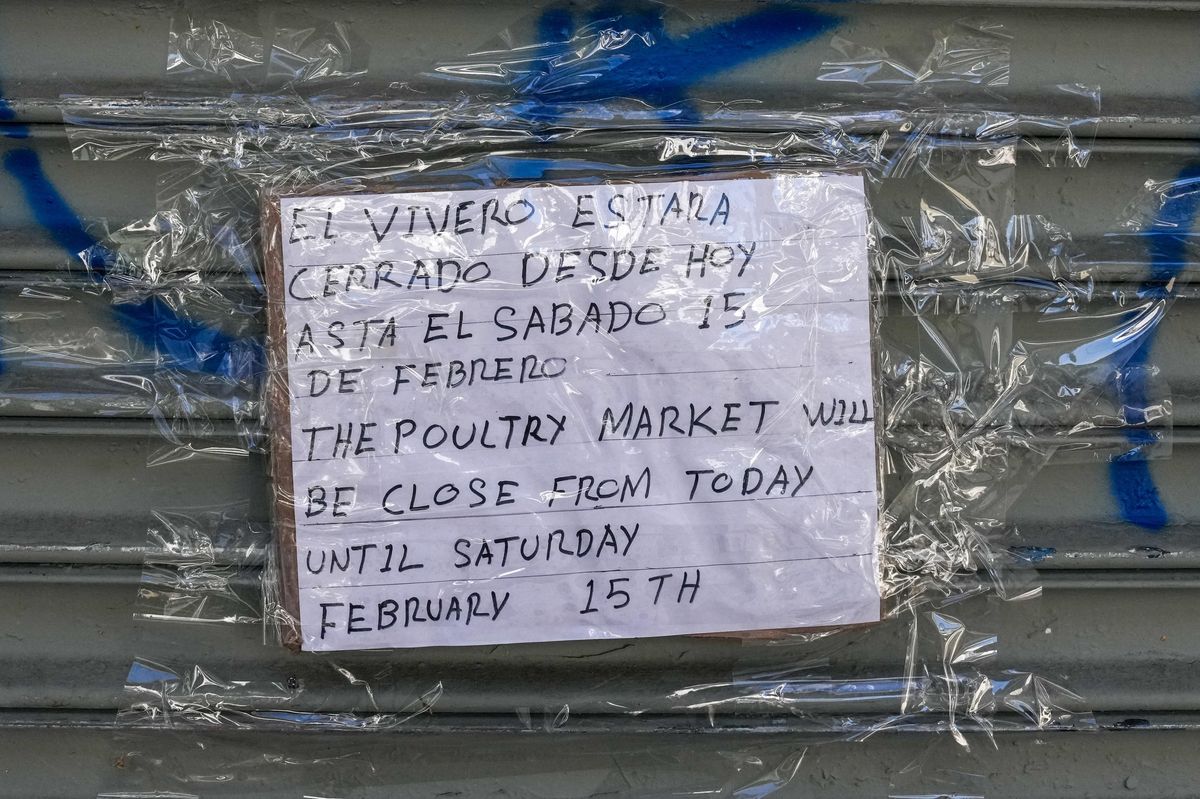 EL VIVERO ESTARA
CERRADO DESDE HOY
ASTA EL SABADO 15
DE FEBRERO
THE POULTRY MARKET WILL
BE CLOSE FROM TODAY
UNTIL SATURDAY
FEBRUARY 15TH